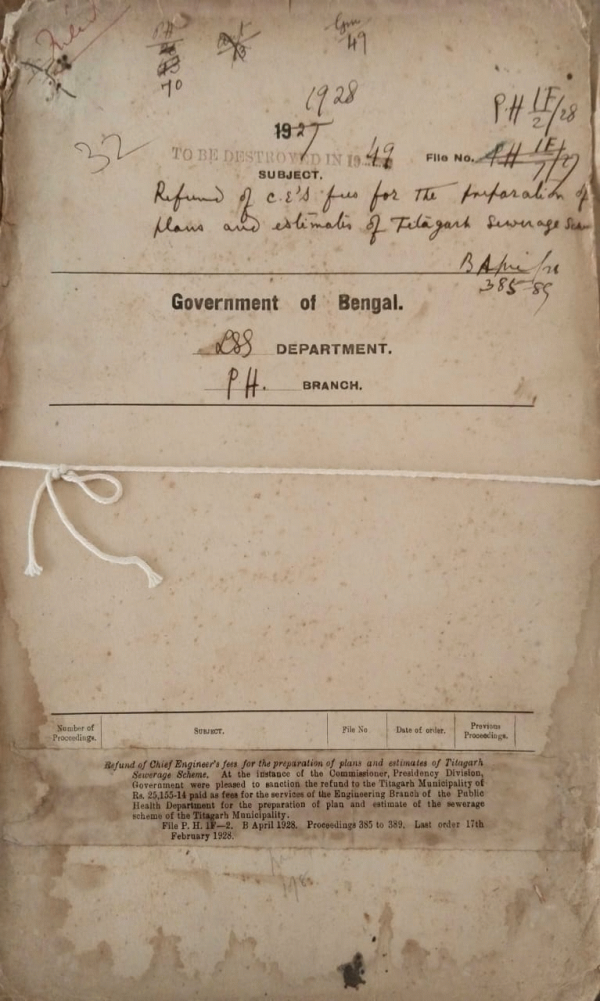 Filed
PH
70
Gm
49
1928
1927
PH 1F/2/28
32
TO BE DESTROYED IN 1949
File No. PH 1F/7/27
SUBJECT.
Refund of C.E's fees for the preparation of
plans and estimates of Titagarh Sewerage
B April/28
385-89
Government of Bengal.
LSG DEPARTMENT.
PH. BRANCH.
Number of Proceedings.
SUBJECT.
File No
Date of order.
Previous Proceedings.
Refund of Chief Engineer's fees for the preparation of plans and estimates of Titagarh
Sewerage Scheme. At the instance of the Commissioner, Presidency Division,
Government were pleased to sanction the refund to the Titagarh Municipality of
Rs. 25,155-14 paid as fees for the services of the Engineering Branch of the Public
Health Department for the preparation of plan and estimate of the sewerage
scheme of the Titagarh Municipality.
File P. H. 1F—2. B April 1928. Proceedings 385 to 389. Last order 17th
February 1928.